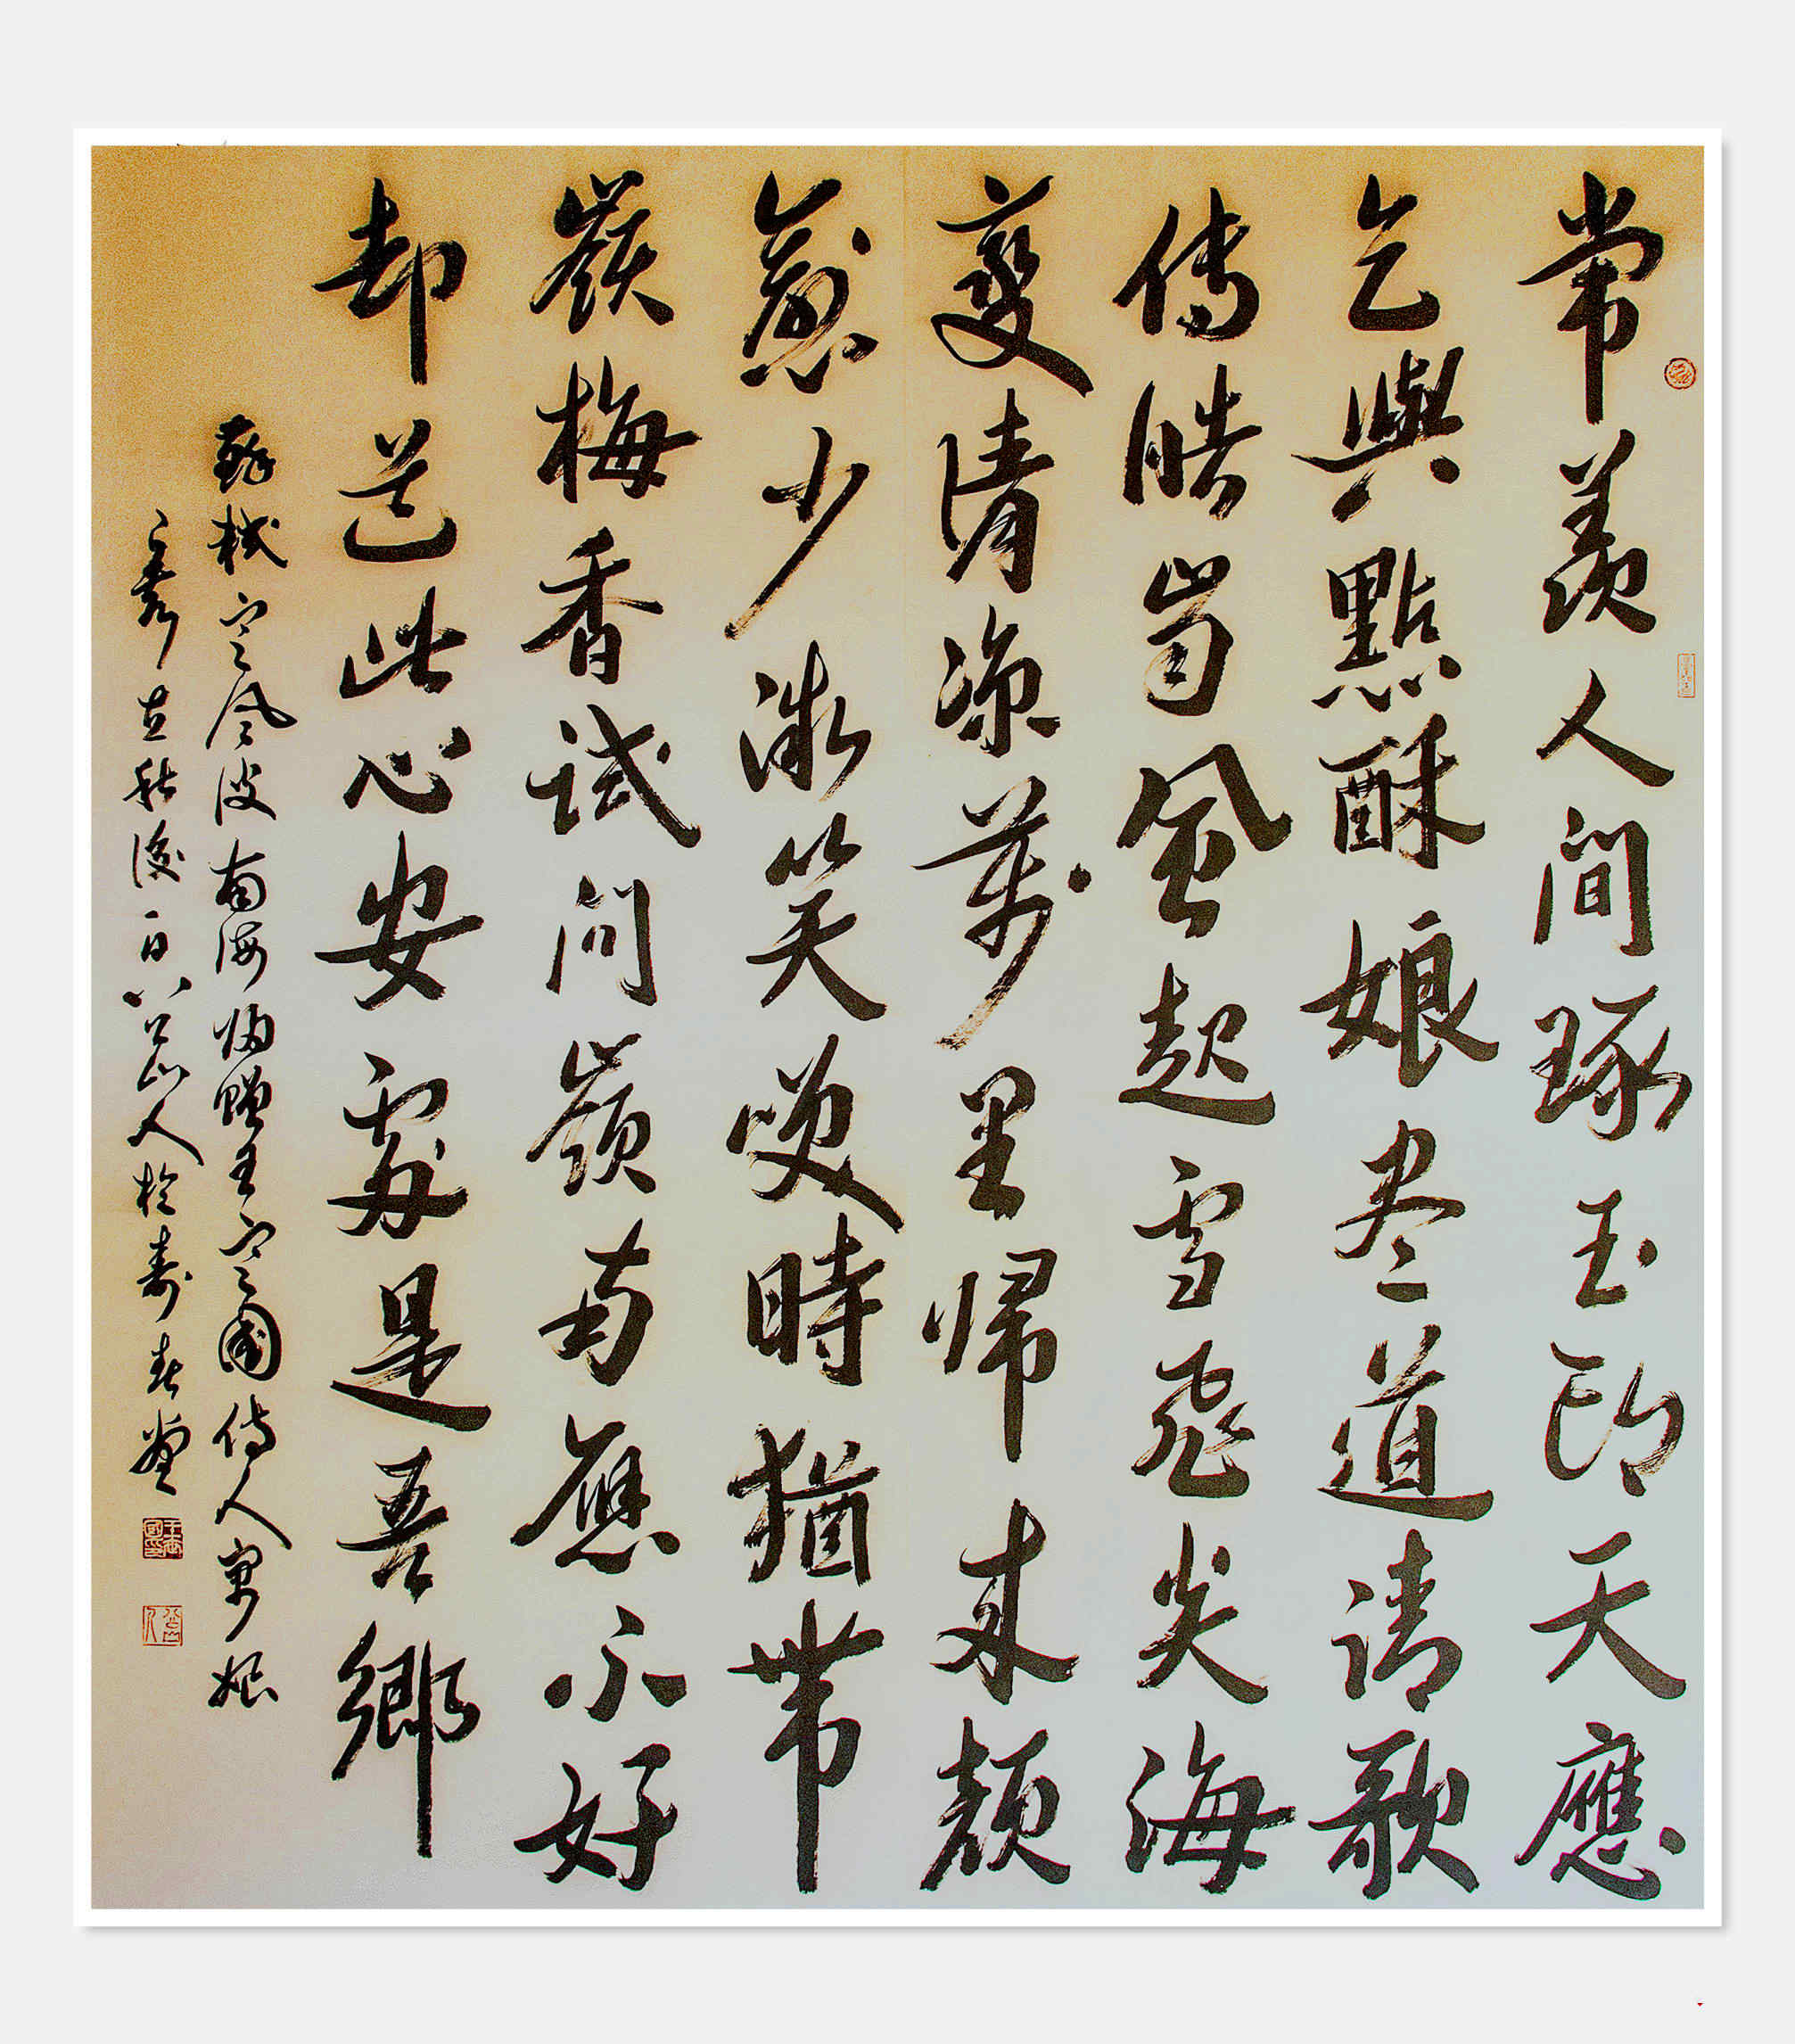 常羨人間琢玉郎天應
乞與點酥娘尽道清歌
傳皓齒風起雪飛炎海
變清涼萬里歸來顏
愈少微笑咲時猶帶
嶺梅香試問嶺南應不好
却道此心安處是吾鄉
蘇軾定風波南海歸贈王定國侍人寓娘
立秋後一日八公山人於壽春堂